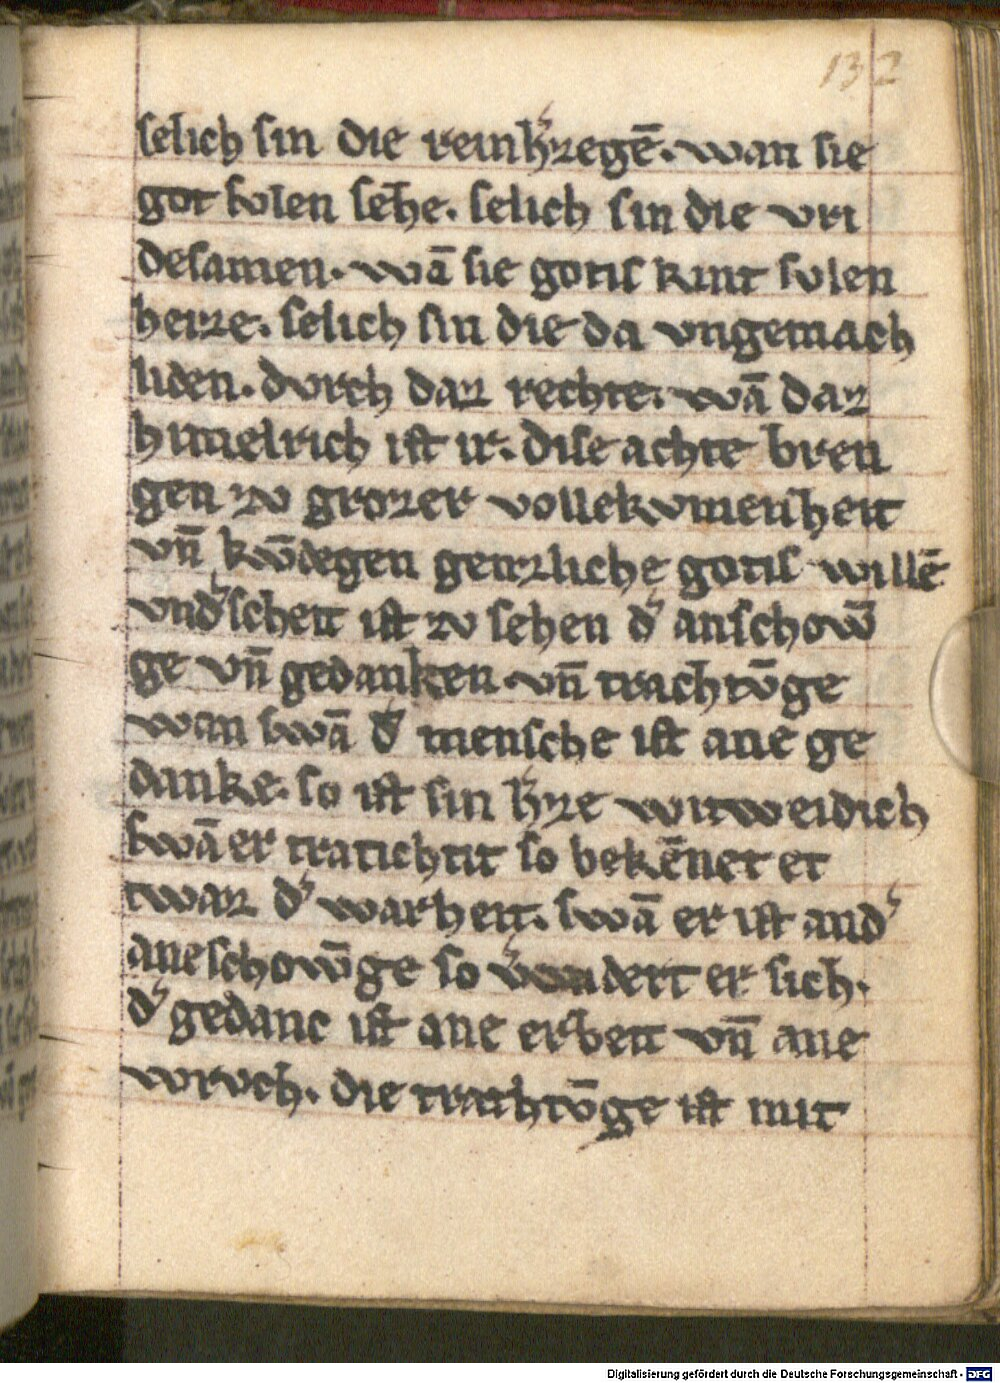 132
selich sin die reinh᷎zegē. wan sie
got svlen sehe. selich sin die vri
desamen. wā sie gotis kint svlen
heize. selich sin die da vngemach
liden. dvrch daz rechte. wā daz
himelrich ist ir. dise achte bren
gen zv grozer vollekvmenheit
vn̄ kv̄degen genzliche gotis willē
vnd᷎scheit ist zv sehen d᷎ anschow̄
ge vn̄ gedanken. vn̄ trachtv̄ge
wan swā d᷎ mensche ist ane ge
danke. so ist sin h᷎ze witweidich
swā er tratichtit so bekēnet et
twaz d᷎ warheit. swā er ist and᷎
aneschow̄ge so dert er sich.
d᷎ gedanc ist ane erbeit vn̄ ane
wrvch. die trathtv̄ge ist mit
Digitalisierung gefördert durch die Deutsche Forschungsgemeinschaft - DFG